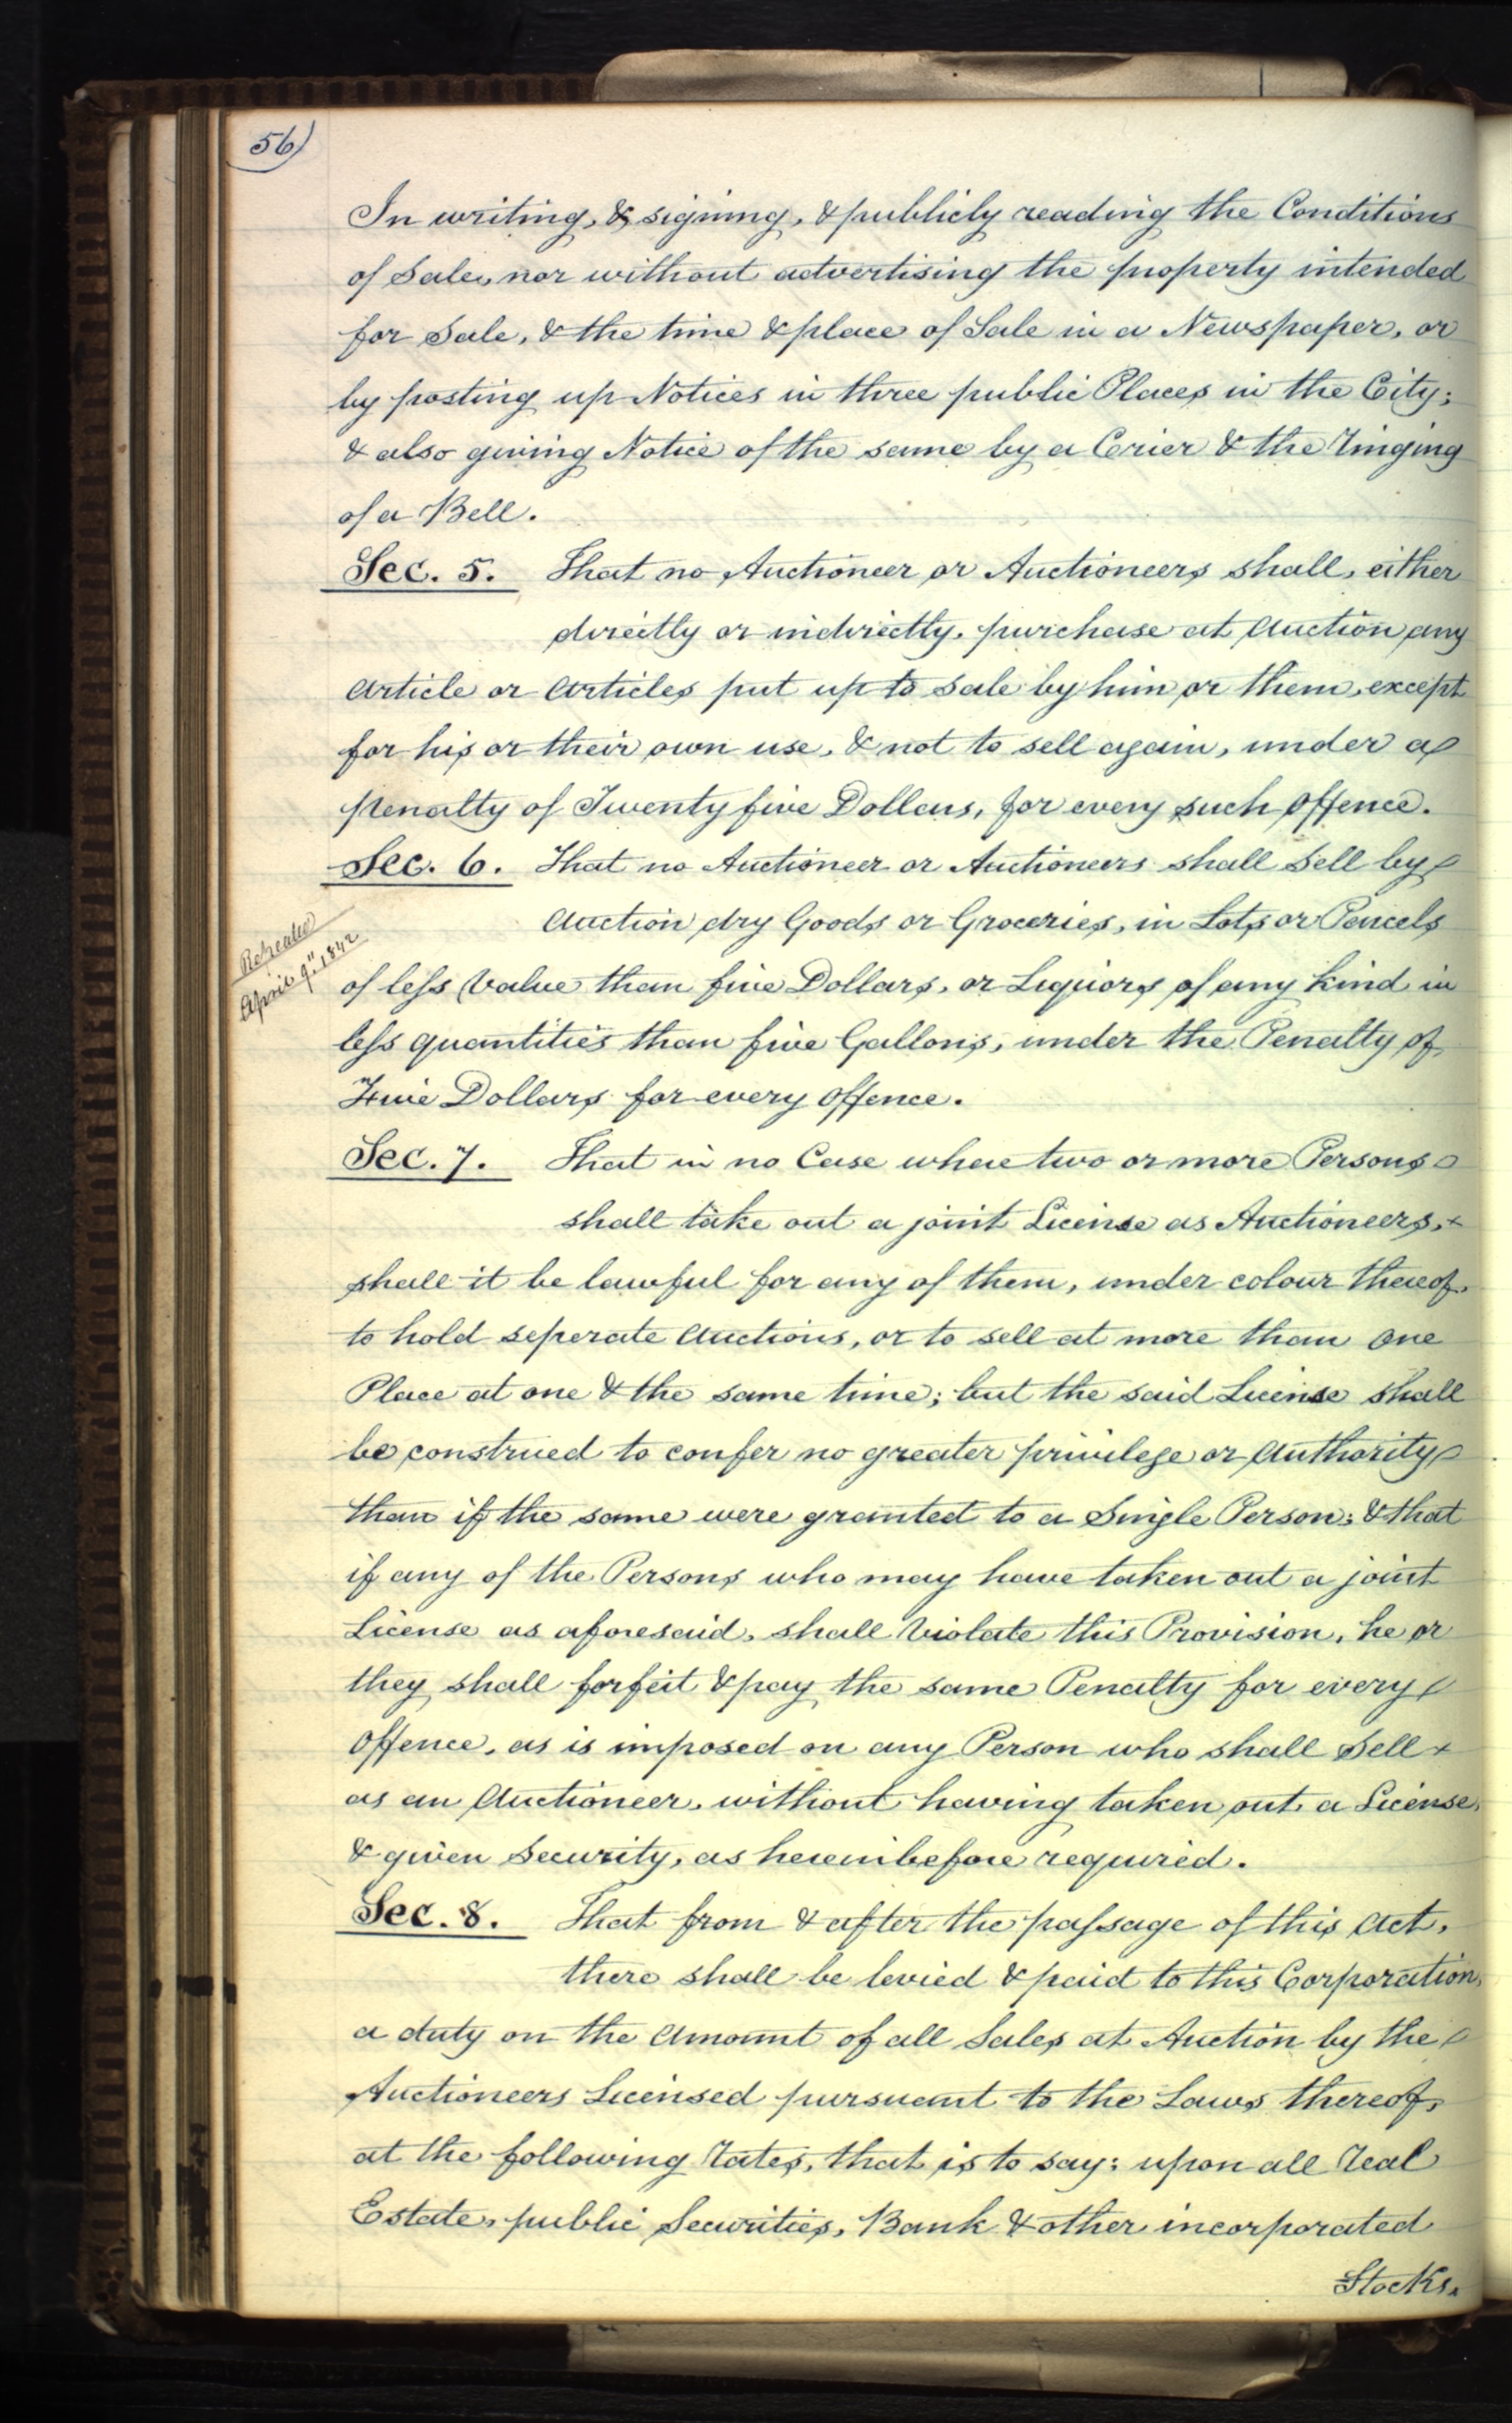 56)
In writing, & signing, & publicly reading the Conditions
of Sale, nor without advertising the property intended
for Sale, & the time & place of Sale in a Newspaper, or
by posting up Notices in three public Places in the City;
& also giving Notice of the same by a Crier & the ringing
of a Bell.
Sec. 5. That no Auctioneer or Auctioneers shall, either
directly or indirectly, purchase at Auction any
Article or Articles put up to Sale by him or them, except
for his or their own use, & not to sell again, under a
penalty of Twenty five Dollars, for every such Offence.
Sec. 6. That no Auctioneer or Auctioneers shall Sell by
Auction dry Goods or Groceries, in Lots or Parcels
Repealed
April 9th 1842
of less Value than five Dollars, or Liquors of any kind in
less quantities than five Gallons, under the Penalty of
Five Dollars for every Offence.
Sec. 7. That in no Case where two or more Persons
shall take out a joint License as Auctioneers,
shall it be lawful for any of them, under colour thereof,
to hold seperate Auctions, or to sell at more than One
Place at one & the same time; but the said License shall
be construed to confer no greater privilege or Authority
than if the same were granted to a Single Person; & that
if any of the Persons who may have taken out a joint
License as aforesaid, shall Violate this Provision, he or
they shall forfeit & pay the same Penalty for every
Offence, as is imposed on any Person who shall Sell
as an Auctioneer, without having taken out a License,
& given Security, as hereinbefore required.
Sec. 8. That from & after the passage of this Act,
there shall be levied & paid to this Corporation,
a duty on the Amount of all Sales at Auction by the
Auctioneers Licensed pursuant to the Laws thereof,
at the following rates, that is to say: upon all real
Estate, public Securities, Bank & other incorporated
Stocks.